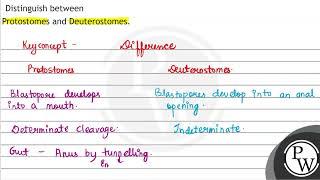 Distinguish between
Protostomes and Deuterostomes.
Key concept - Difference
Protostomes Deuterostomes
Blastopore develops Blastopores develop into an anal
into a mouth. opening.
Determinate cleavage. Indeterminate.
Gut - Anus by tunnelling.
En
PW